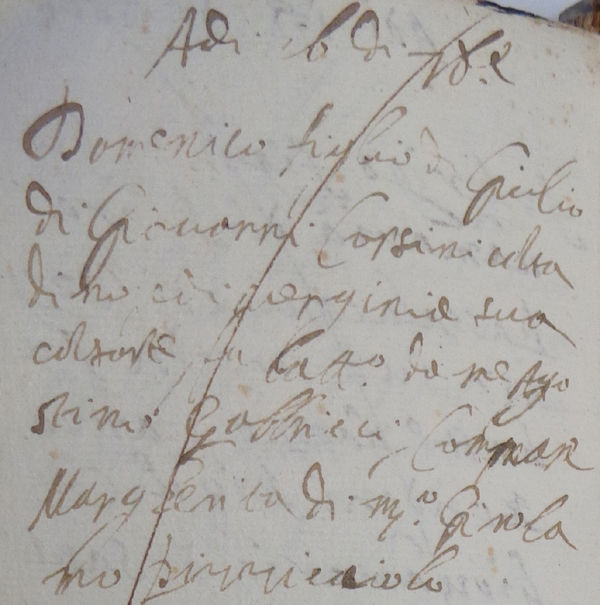 Adi 16 di 7b.e
Domenico figlio di Giulio
di Giovanni Corsini e della
di no e di verginia sua
consorte fu batt.o da me Ago
stino Gabrieli Commare
Margherita di m.o Girola
mo